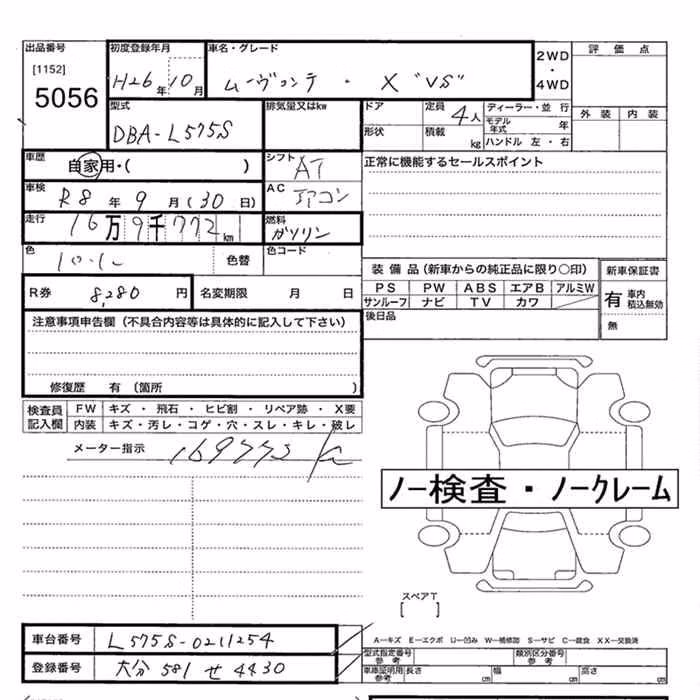 出品番号 初度登録年月 車名・グレード 2WD・4WD 評価点
[1152]
5056 H26年10月 ムーヴコンテ・X "VS"
型式 排気量又はkw ドア 定員 4人 ディーラー・並行 外装 内装
DBA-L575S 形状 積載 kg モデル年式 年
ハンドル 左・右
車歴 自家用・( ) シフト AT 正常に機能するセールスポイント
車検 R8年9月(30日) AC エアコン
走行 16万9千772km 燃料 ガソリン
色 色替 色コード
装備品(新車からの純正品に限り〇印) 新車保証書
R券 8,280円 名変期限 月 日 PS PW ABS エアB アルミW 有 車内積込無効
サンルーフ ナビ TV カワ
注意事項申告欄(不具合内容等は具体的に記入して下さい) 後日品 無
修復歴 有(箇所 )
検査員記入欄 FW キズ・飛石・ヒビ割・リペア跡・X要
内装 キズ・汚レ・コゲ・穴・スレ・キレ・破レ
メーター指示
ノー検査・ノークレーム
スペアT
[ ]
A—キズ E—エクボ U—凹み W—補修跡 S—サビ C—腐食 XX—交換済
車台番号 L575S-0211254 型式指定番号 参考 類別区分番号 参考
登録番号 大分 581 せ 4430 車庫証明用参考 長さ cm 幅 cm 高さ cm